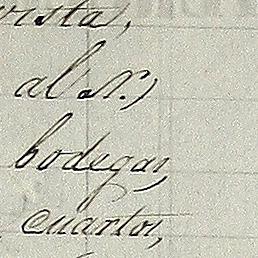 vista,
al N.,
bodegas,
cuartos,